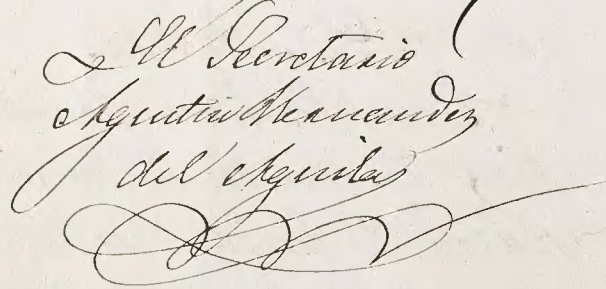 El Secretario
Agustin Hernandez
del Aguila